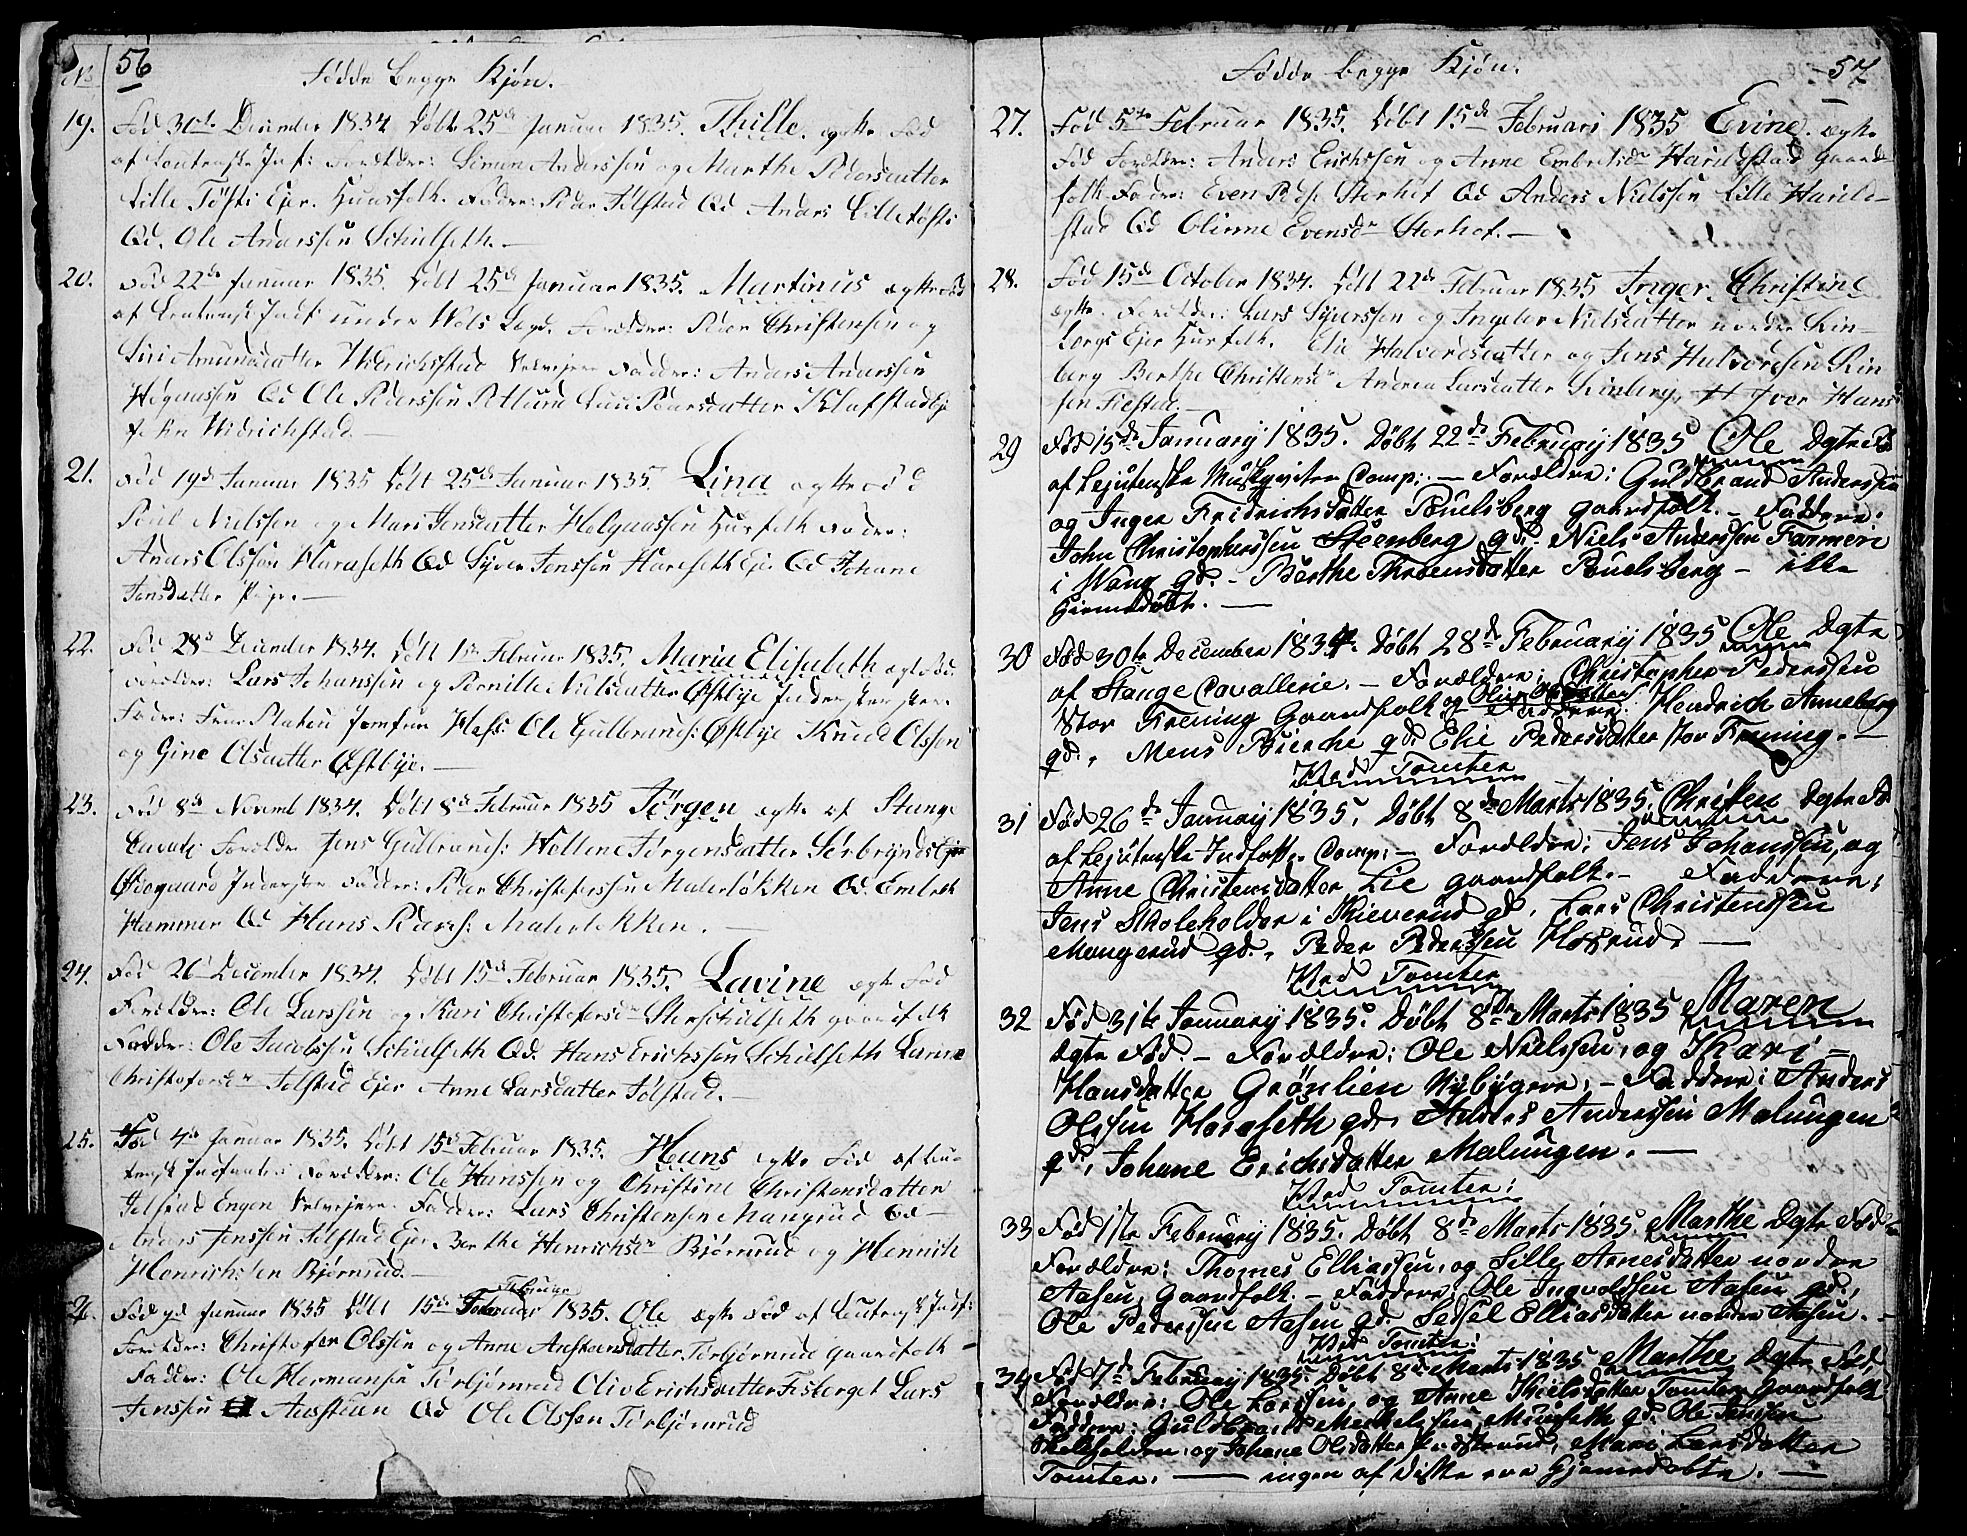 56
No
Fødde Begge Kjøn.
19. Fød 30te December 1834 Døbt 25de Januar 1835. Thille, ægte Fød
af Forældre: Simen Anderssen og Marthe Pedersdatter
Lille Tøfti Ejer. Huusfolk. Faddre: Peder Tølstad Gd Anders Lilletøfti
Gd. Ole Anderssen Schulseth. —
20. Fød 22de Januar 1835. Døbt 25de Januar 1835. Martinus ægte Fød
af under Wols Lægd. Forældre: Peder Christensen og
Siri Amundsdatter Hidrichstad Faddre: Anders Anderssen
Høgaassen Gd Ole Pederssen Pedersdatter Klafstad
Hidrichstad. —
21. Fød 19de Januar 1835 Døbt 25de Januar 1835. Lina ægte Fød
Poul Nielssen og Mari Jensdatter Holgaassen Huusfolk Faddre:
Anders Olssen Haraseth Gd Syver Jenssen Haraseth Ejer Gd Johane
Jensdatter Pige. —
22. Fød 28de December 1834. Døbt 1ste Februar 1835. Maria Elisabeth ægte Fød.
Forældre: Lars Johanssen og Pernille Nielsdatter Østbye Inderster
Faddre: Frue Platou Jomfrue Ole Gulbrands: Østbye Knud Olssen
og Gine Olsdatter Østbye. —
23. Fød 8de Novemb 1834. Døbt 8de Februar 1835 Jørgen ægte af Stange
Cavall: Forældre Jens Gulbrands: Hellene Jørgensdatter Sørbryndsejer
Ødegaard Inderster Faddre: Peder Christoferssen Malerløkken Gd. Embret
Hammer Gd Hans Peders: Malerløkken. —
24. Fød 26de December 1834. Døbt 15de Februar 1835. Lavine ægte Fød
Forældre: Ole Larssen og Kari Christofersdr Storschulseth gaardfolk
Faddre: Ole Jacobssen Schulseth Gd. Hans Erichssen Schulseth
Christofersdr Tølstad Ejer Anne Larsdatter Tølstad. —
25. Fød 4de Januar 1835. Døbt 15de Februar 1835. Hans ægte Fød af Leu-
tensk Infanteri Forældre: Ole Hanssen og Christine Christensdatter
Tølstad Engen Selvejere. Faddre: Lars Christensen Mangrud Gd —
Anders Jenssen Tølstad Ejer Berthe Henrichsdr Bjørnrud og Henrich
Henrichssen Bjørnrud. —
Februar
26. Fød Januar 1835 Døbt 15de Februar 1835. Ole ægte Fød af Leutensk Inf:
Forældre: Christofer Olssen og Anne Anstensdatter Torbjørnrud gaardfolk
Faddre: Ole Hermansen Torbjørnrud Oliv Erichsdatter Fisberget Lars
Jenssen Austeun Gd Ole Olssen Torbjørnrud
57
Fødde begge Kjøn.
27. Fød 5te Februar 1835. Døbt 15de Februari 1835 Evine. ægte
Fød Forældre: Anders Erichssen og Anne Embretsdr Harildstad gaard
folk Faddre: Even Peds: Storhof Gd Anders Nielssen Lille Harild-
stad Gd Olinne Evensdr Storhof. —
28. Fød 15de October 1834. Døbt 22de Februar 1835 Inger Christine
ægte. Forældre: Lars Syverssen og Ingebor Nielsdatter nordre Kin-
bergs Ejer Huusfolk. Elie Halvorsdatter og Jens Halvorsen Kin
berg Berthe Christensdr Andrea Larsdatter Kinberg Iver Hans
sen —
29 Fød 15de January 1835. Døbt 22de February 1835 Ole Ægte Fød
af Lejutenske Musqviter Comp: — Forældre: Guldbrand Anderssen
og Inger Fridrichsdatter Pouelsberg gaardfolk. — Faddere:
John Christopherssen Steenberg gd. Niels Anderssen Farmen
i Wang gd. — Berthe Throensdatter Pouelsberg — ikke
Hiemedøbt. —
30 Fød 30te December 1834. Døbt 28de February 1835 Ole Ægte
af Stange Cavallerie. — Forældre: Christopher Pederssen
Stor Frening Gaardfolk og Faddere: Hendrich Anneberg
gd., Mens Bierche gd. Elie Pedersdatter stor Frening. —
Ved Tomter
31 Fød 26de January 1835, Døbt 8de Marts 1835, Christen Ægte Fød
af Lejutenske Indfatt: Comp: — Forældre: Jens Johanssen, og
Anne Christensdatter Lie gaardfolk. — Faddere;
Jens Skoleholder i Kieverud gd, Lars Christenssen
Mangerud gd., Peder Pederssen Hosrud. —
Ved Tomter
32 Fød 31te January 1835. Døbt 8de Marts 1835 Maren
ægte Fød. — Forældre: Ole Nielssen, og Kari —
Hansdatter Grønlien Nybygere, — Faddere: Anders
Olssen Haraseth gd. Anders Anderssen Malungen
gd, Johane Erichsdatter Malungen. —
Ved Tomter:
33 Fød 1ste February 1835. Døbt 8de Marts 1835. Marthe Ægte Fød
Forældre: Thomes Elliassen, og Sille Arnesdatter nordre
Aasen, Gaardfolk. — Faddere; Ole Ingvoldssen Aasen gd,
Ole Pederssen Aasen gd. Sedsel Elliasdatter nordre Aasen. —
Ved Tomter:
34 Fød 7de February 1835. Døbt 8de Marts 1835 Marthe Ægte Fød,
Forældre: Ole Larssen, og Anne Nielsdatter Tomter Gaardfolk
Faddere: Guldbrand Michelssen Munseth gd. Ole Jenssen
Skoleholder, og Johane Olsdatter Mari Larsdatter
Tomter. — ingen af disse ere Hjemedøbte. —